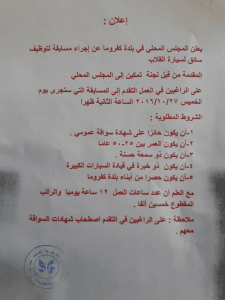 إعلان :
يعلن المجلس المحلي في بلدة كفروما عن إجراء مسابقة لتوظيف
سائق لسيارة القلاب
المقدمة من قبل لجنة تمكين إلى المجلس المحلي
على الراغبين في العمل التقدم إلى المسابقة التي ستجرى يوم
الخميس ٢٠١٦/١٠/٢٧ الساعة الثانية ظهرا
الشروط المطلوبة :
١-أن يكون حائزا على شهادة سواقة عمومي .
٢-أن يكون العمر بين ٢٥-٥٠ عاما
٣-أن يكون ذو سمعة حسنة .
٤-أن يكون ذو خبرة في قيادة السيارات الكبيرة
٥-أن يكون حصرا من أبناء بلدة كفروما
مع العلم أن عدد ساعات العمل ١٢ ساعة يوميا والراتب
المقطوع خمسين ألفا .
ملاحظة : على الراغبين في التقدم اصطحاب شهادات السواقة
معهم .